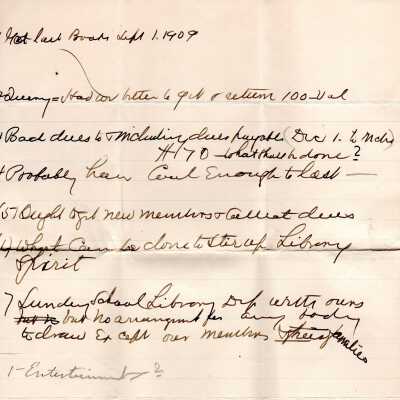 1 Got last Books Sept 1. 1909
2 Query = Had we better to get & return 100 Vol
3 Bad dues to & including dues payable (Dec 1. to Mch)
$170 – what shall be done?
4 Probably have Coal Enough to last —
(5) Ought to get new members & Collect dues
(6) What Can be done to stir up Library
Spirit
7 Sunday School Library Dep with ours
but no arrangement for any body
to draw Except our members & their families
1 – Entertainment?